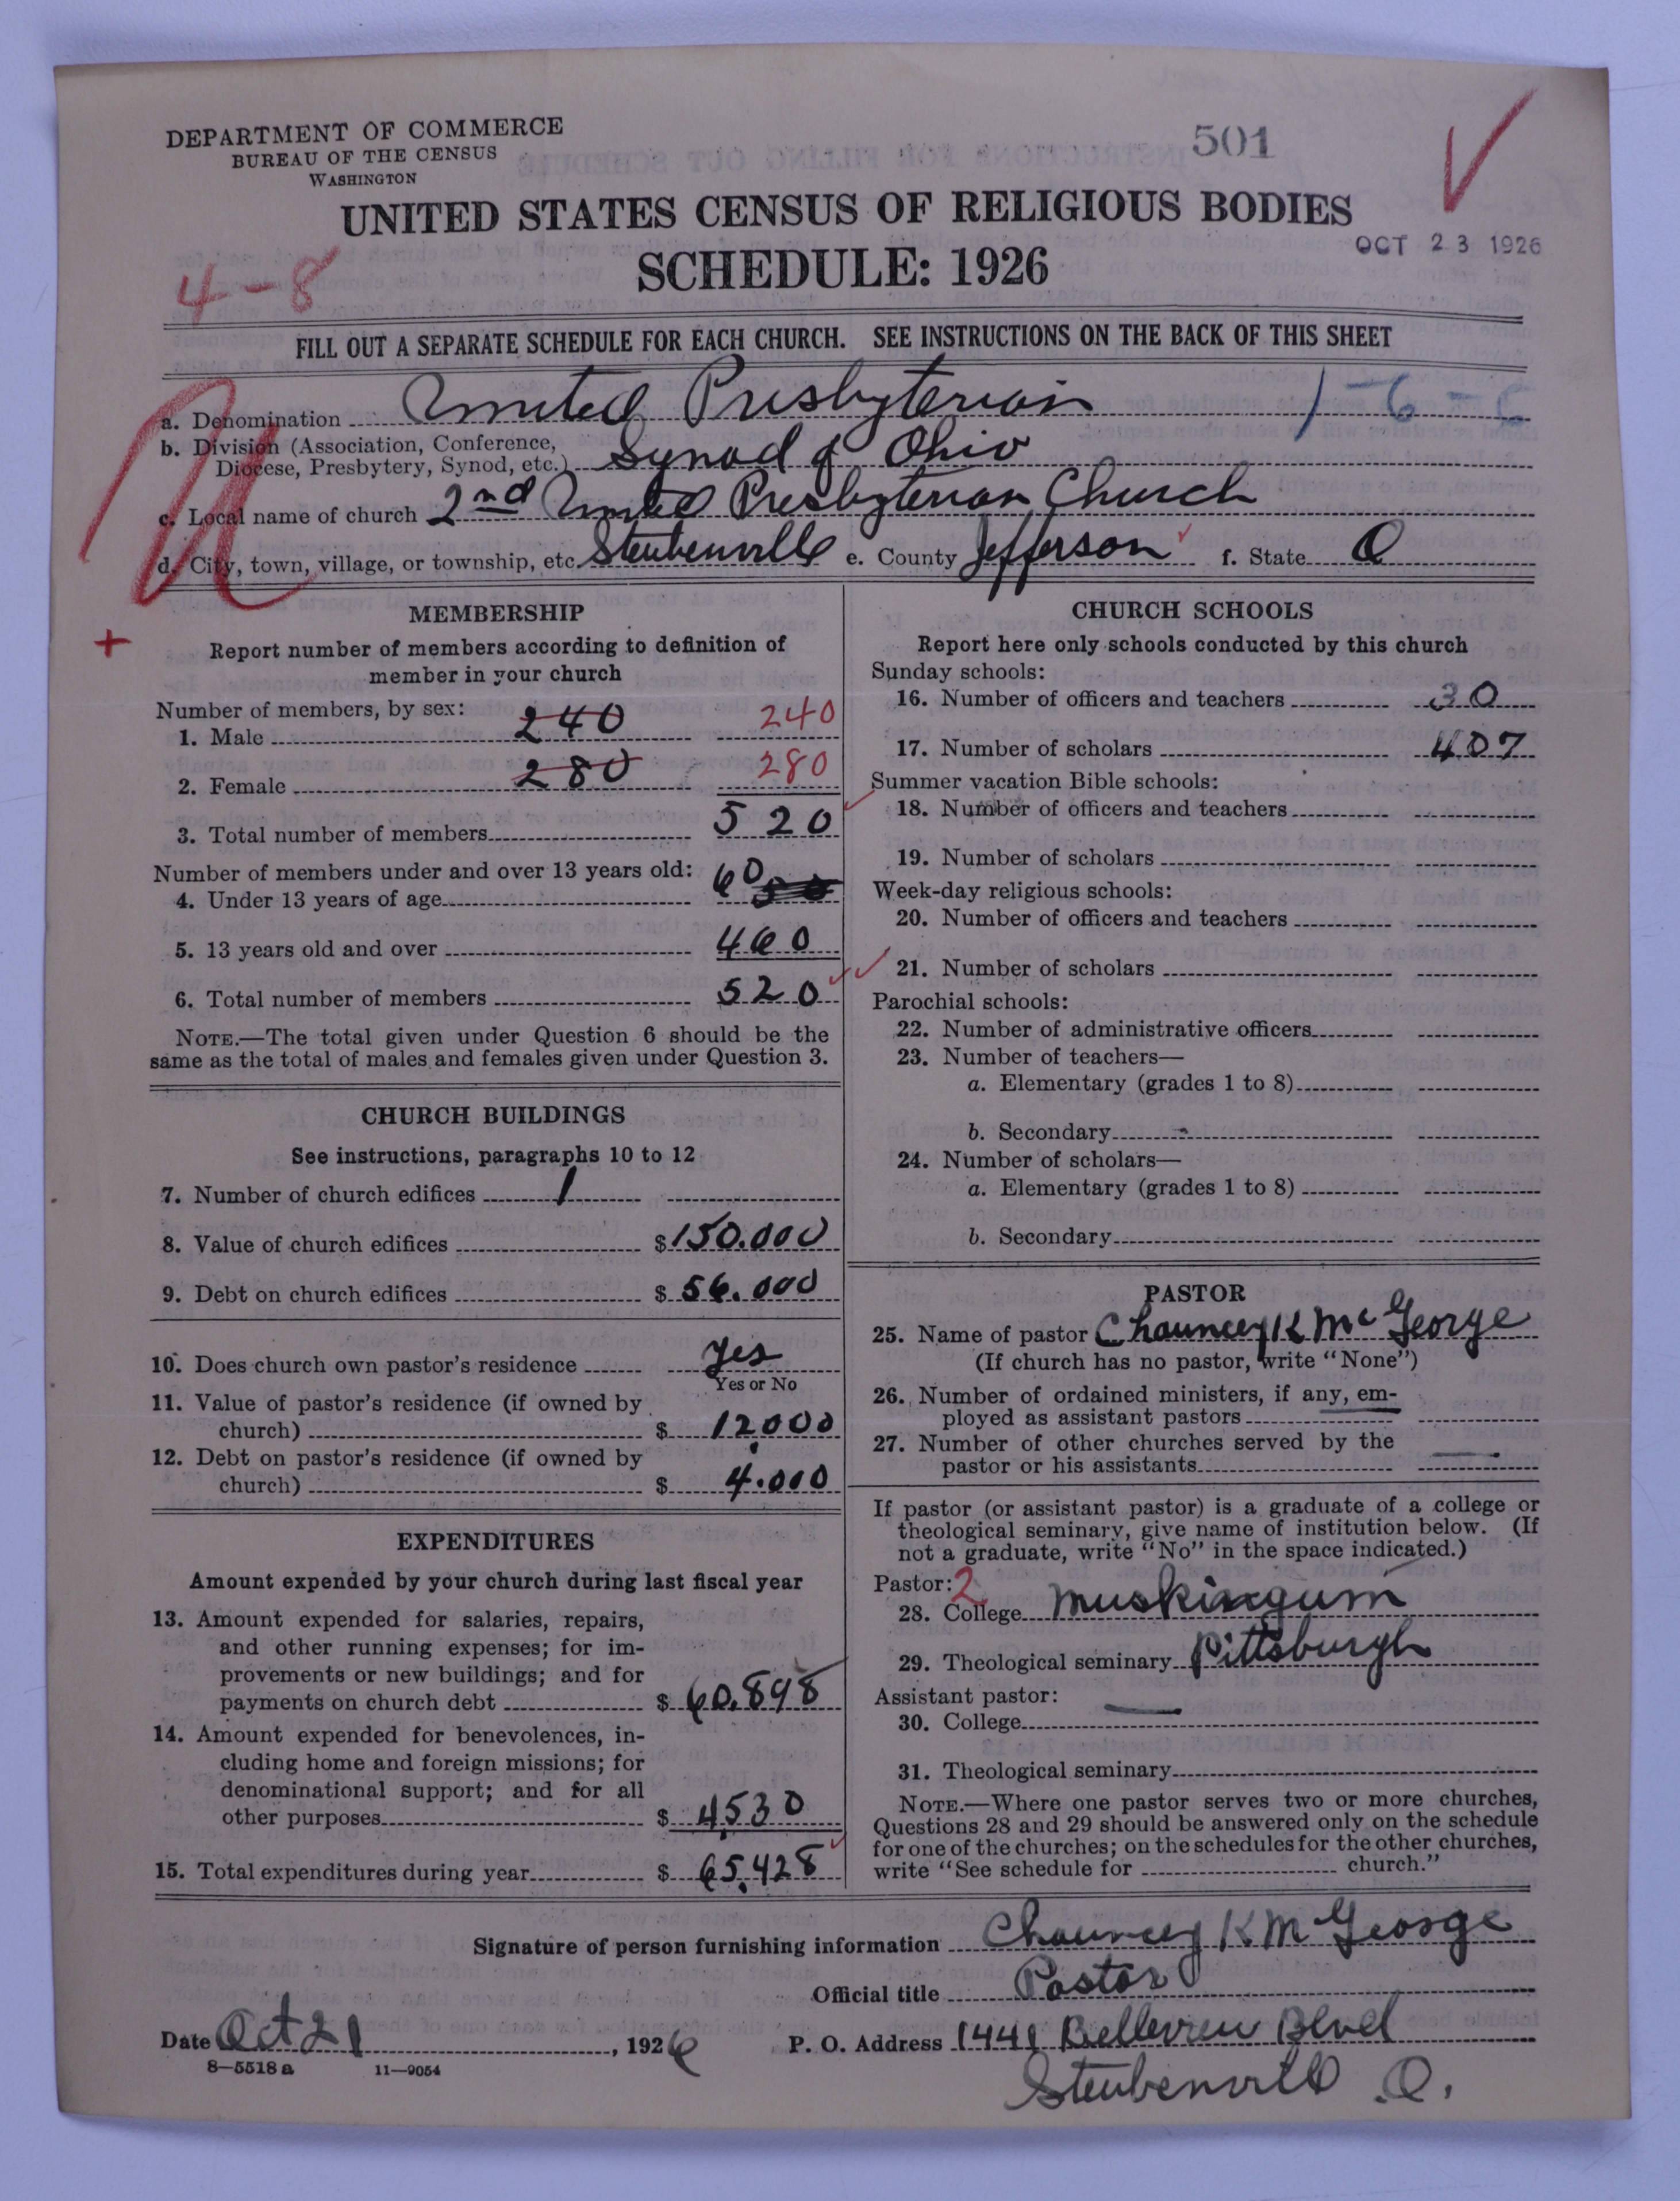 DEPARTMENT OF COMMERCE
BUREAU OF THE CENSUS
WASHINGTON
501
UNITED STATES CENSUS OF RELIGIOUS BODIES
SCHEDULE: 1926
OCT 23 1926
4-8
FILL OUT A SEPARATE SCHEDULE FOR EACH CHURCH. SEE INSTRUCTIONS ON THE BACK OF THIS SHEET
a. Denomination United Presbyterian 1-6-
b. Division (Association, Conference,
Diocese, Presbytery, Synod, etc.) Synod of Ohio
c. Local name of church 2nd United Presbyterian Church
d. City, town, village, or township, etc. Steubenville e. County Jefferson f. State O
MEMBERSHIP
Report number of members according to definition of
member in your church
Number of members, by sex:
1. Male 240 240
2. Female 280 280
3. Total number of members 520
Number of members under and over 13 years old:
4. Under 13 years of age 60
5. 13 years old and over 460
6. Total number of members 520
NOTE.—The total given under Question 6 should be the
same as the total of males and females given under Question 3.
CHURCH BUILDINGS
See instructions, paragraphs 10 to 12
7. Number of church edifices 1
8. Value of church edifices $150.000
9. Debt on church edifices $56.000
10. Does church own pastor's residence Yes
Yes or No
11. Value of pastor's residence (if owned by
church) $12,000
12. Debt on pastor's residence (if owned by
church) $4.000
EXPENDITURES
Amount expended by your church during last fiscal year
13. Amount expended for salaries, repairs,
and other running expenses; for im-
provements or new buildings; and for
payments on church debt $60,898
14. Amount expended for benevolences, in-
cluding home and foreign missions; for
denominational support; and for all
other purposes $4,530
15. Total expenditures during year $65,428
CHURCH SCHOOLS
Report here only schools conducted by this church
Sunday schools:
16. Number of officers and teachers 30
17. Number of scholars 407
Summer vacation Bible schools:
18. Number of officers and teachers
19. Number of scholars
Week-day religious schools:
20. Number of officers and teachers
21. Number of scholars
Parochial schools:
22. Number of administrative officers
23. Number of teachers—
a. Elementary (grades 1 to 8)
b. Secondary
24. Number of scholars—
a. Elementary (grades 1 to 8)
b. Secondary
PASTOR
25. Name of pastor Chauncey K McGeorge
(If church has no pastor, write "None")
26. Number of ordained ministers, if any, em-
ployed as assistant pastors
27. Number of other churches served by the
pastor or his assistants
If pastor (or assistant pastor) is a graduate of a college or
theological seminary, give name of institution below. (If
not a graduate, write "No" in the space indicated.)
Pastor: 2
28. College Muskingum
29. Theological seminary Pittsburgh
Assistant pastor:
30. College
31. Theological seminary
NOTE.—Where one pastor serves two or more churches,
Questions 28 and 29 should be answered only on the schedule
for one of the churches; on the schedules for the other churches,
write "See schedule for church."
Signature of person furnishing information Chauncey K McGeorge
Official title Pastor
Date Oct 21, 1926 P. O. Address 1441 Bellevieu Blvd
8-5518 a 11-9054
Steubenville O.